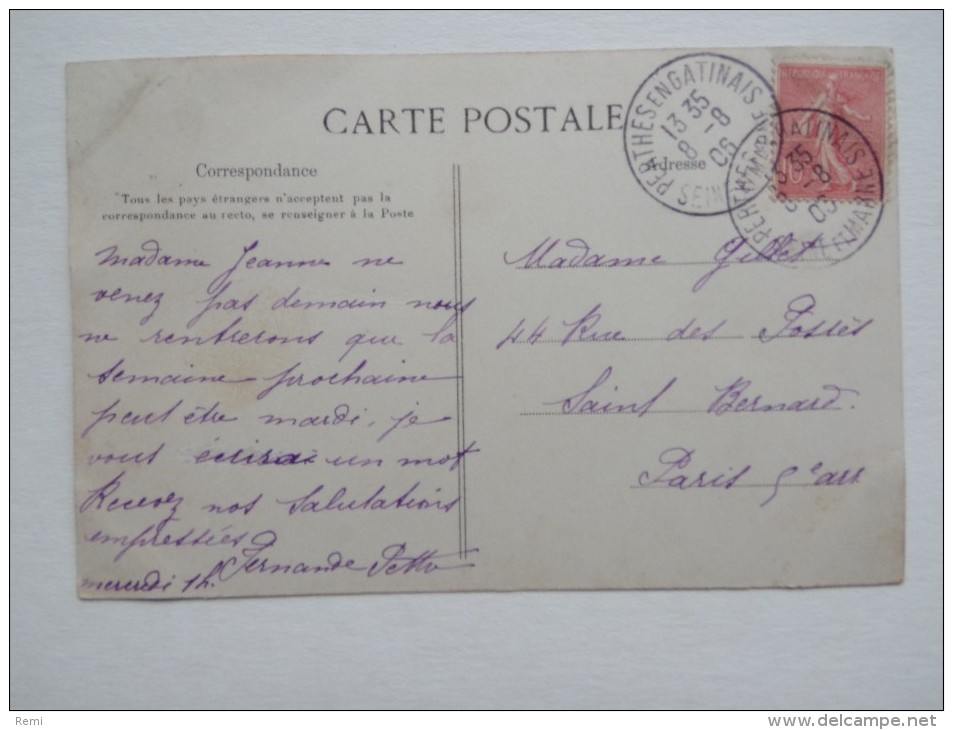 CARTE POSTALE
Correspondance
Tous les pays étrangers n'acceptent pas la
correspondance au recto, se renseigner à la Poste
Madame Jeanne ne
venez pas demain nous
ne rentrerons que la
semaine prochaine
peut être mardi, je
vous écrirai un mot
Recevez nos Salutations
empressées
Fernande
mercredi 1h.
Adresse
Madame Gillet
44 Rue des Fossés
Saint Bernard.
Paris 5e arr
REPUBLIQUE FRANÇAISE
10
PERTHES EN GATINAIS
13 35
8 - 8
06
SEINE ET MARNE
PERTHES EN GATINAIS
13 35
8 - 8
06
SEINE ET MARNE
Remi
www.delcampe.net